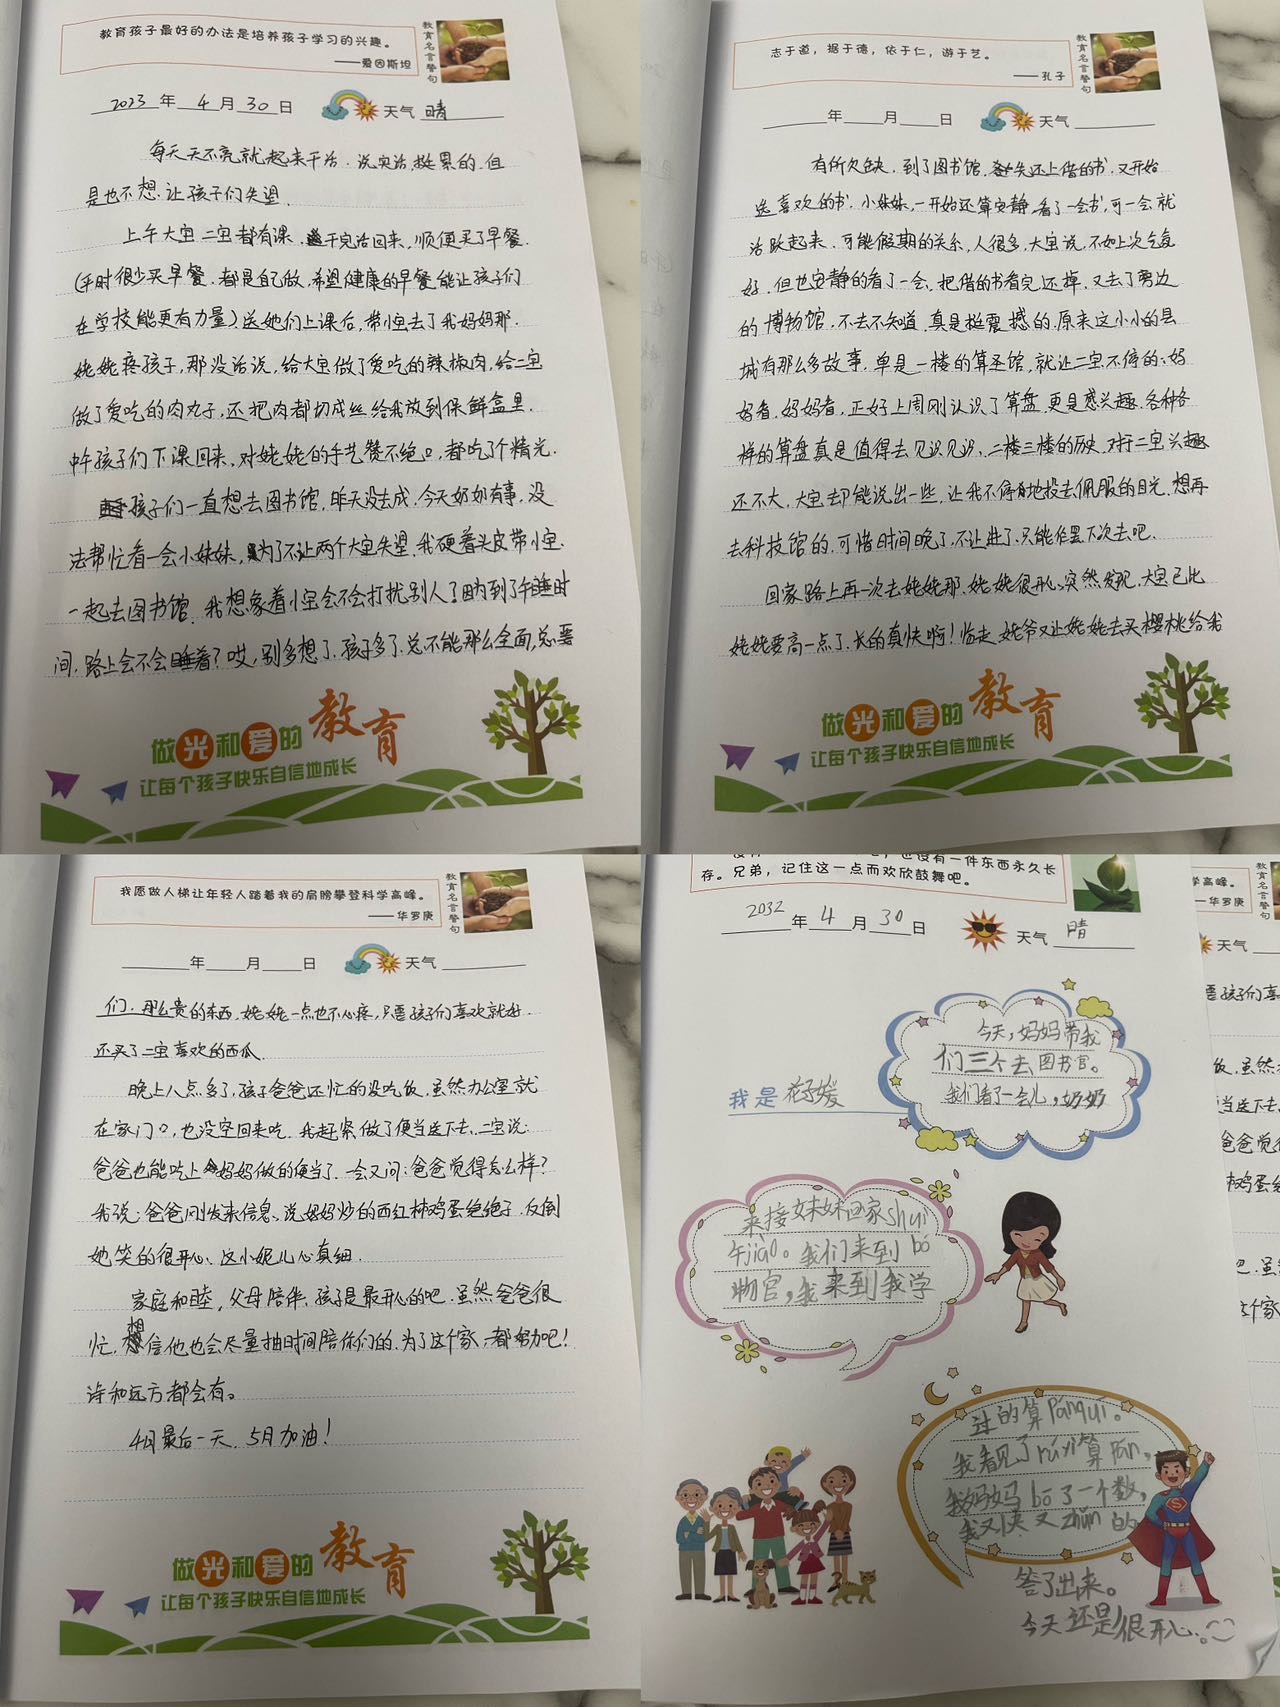 教育孩子最好的办法是培养孩子学习的兴趣。
——爱因斯坦
教育名言警句
2023年4月30日 天气 晴
每天天不亮就起来干活.说实话,挺累的.但
是也不想.让孩子们失望.
上午大宝二宝都有课.干完活回来,顺便买了早餐.
(平时很少买早餐.都是自己做.希望健康的早餐能让孩子们
在学校能更有力量)送她们上课后,带小宝去了我妈妈那.
姥姥疼孩子,那没话说,给大宝做了爱吃的辣椒肉,给二宝
做了爱吃的肉丸子,还把肉都切成丝给我放到保鲜盒里.
中午孩子们下课回来,对姥姥的手艺赞不绝口,都吃了个精光.
孩子们一直想去图书馆,昨天没去成.今天奶奶有事,没
法帮忙看一会小妹妹,为了不让两个大宝失望.我硬着头皮带小宝.
一起去图书馆.我想象着小宝会不会打扰别人?因为到了午睡时
间.路上会不会睡着?哎,别多想了.孩子多了.总不能那么全面,总要
做光和爱的教育
让每个孩子快乐自信地成长
志于道，据于德，依于仁，游于艺。
——孔子
教育名言警句
年 月 日 天气
有所欠缺.到了图书馆,先还上借的书.又开始
选喜欢的书.小妹妹,一开始还算安静.看了一会书,可一会就
活跃起来.可能假期的关系,人很多,大宝说,不如上次气氛
好.但也安静的看了一会,把借的书看完还掉.又去了旁边
的博物馆.不去不知道.真是挺震撼的.原来这小小的县
城有那么多故事.单是一楼的算圣馆,就让二宝不停的:妈
妈看.妈妈看,正好上周刚认识了算盘.更是感兴趣.各种各
样的算盘真是值得去见识见识.二楼三楼的历史.对于二宝兴趣
还不大,大宝却能说出一些,让我不停地投去佩服的目光.想再
去科技馆的.可惜时间晚了.不让进了.只能作罢下次去吧.
回家路上再一次去姥姥那.姥姥很开心.突然发现.大宝已比
姥姥要高一点了.长的真快啊!临走.姥爷又让姥姥去买樱桃给我
做光和爱的教育
让每个孩子快乐自信地成长
我愿做人梯让年轻人踏着我的肩膀攀登科学高峰。
——华罗庚
教育名言警句
年 月 日 天气
们.那么贵的东西,姥姥一点也不心疼,只要孩子们喜欢就好.
还买了二宝喜欢的西瓜.
晚上八点多了,孩子爸爸还忙的没吃饭.虽然办公室就
在家门口,也没空回来吃.我赶紧做了便当送下去.二宝说:
爸爸也能吃上妈妈做的便当了.一会又问:爸爸觉得怎么样?
我说:爸爸刚发来信息.说妈妈炒的西红柿鸡蛋绝绝子.反倒
她笑的很开心.这小妮儿心真细.
家庭和睦,父母陪伴.孩子是最开心的吧.虽然爸爸很
忙,想信他也会尽量抽时间陪你们的.为了这个家,都努力吧!
诗和远方都会有。
4月最后一天.5月加油!
做光和爱的教育
让每个孩子快乐自信地成长
也没有一件东西永久长
存。兄弟，记住这一点而欢欣鼓舞吧。
2032年4月30日 天气 晴
今天,妈妈带我
们三个去图书官。
我是
我们看了一会儿,奶奶
来接妹妹回家shuì
午jiào。我们来到bó
物官,我来到我学
过的算pánguì。
我看见了rúyì算pán,
我妈妈bō了一个数,
我又快又zhǔn的
答了出来。
今天还是很开心。
学高峰。
——华罗庚
天气